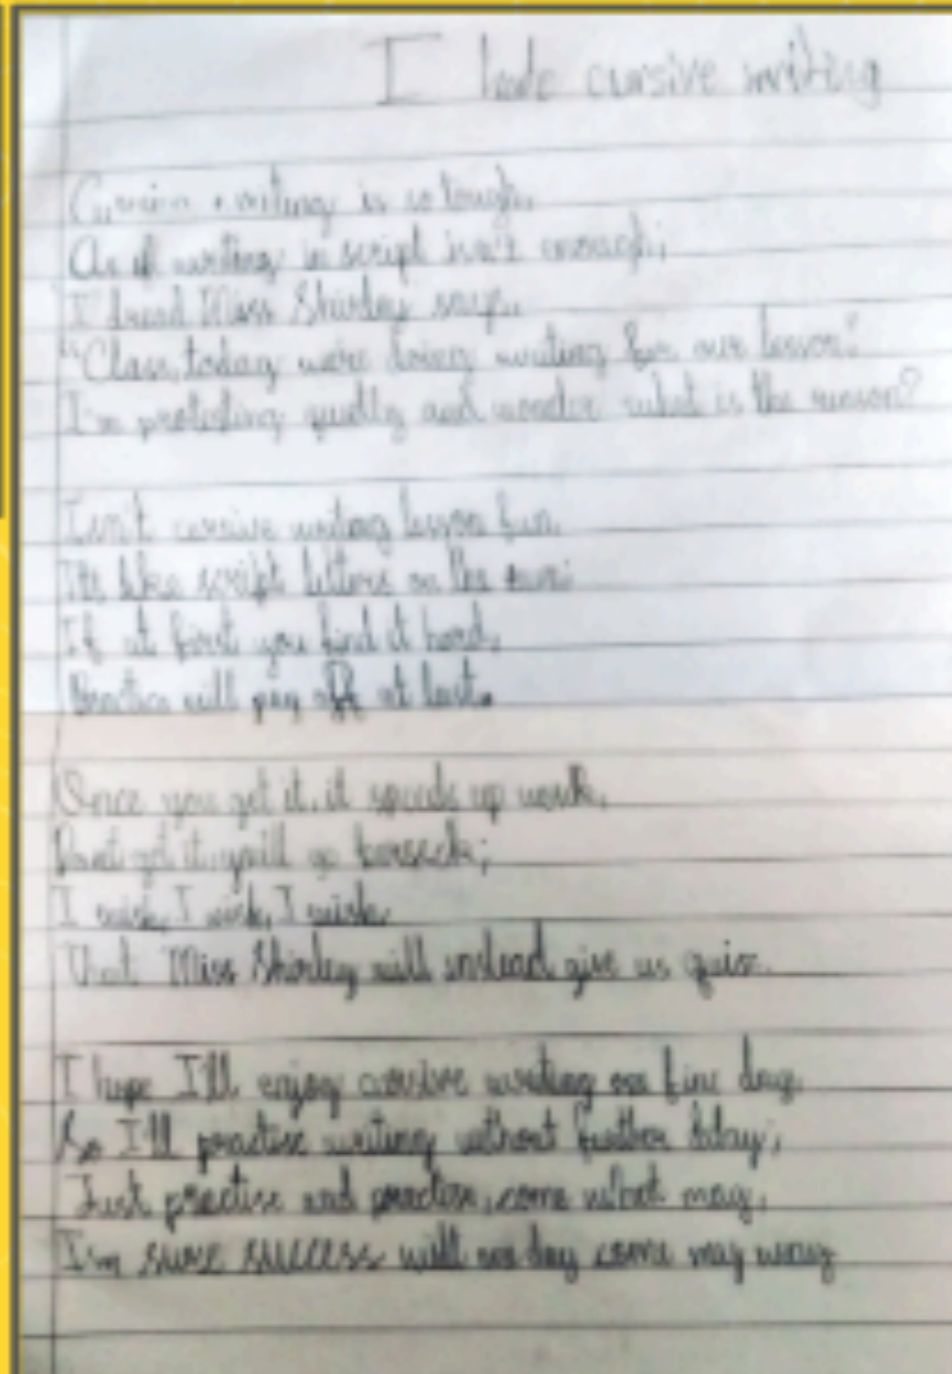 I hate cursive writing
Cursive writing is so tough,
As if writing in script isn't enough;
I dread Miss Shirley says,
"Class, today we're doing writing for our lesson"
I'm protesting quietly and wonder what is the reason?
Isn't cursive writing lesson fun.
It's like script letters on the run;
If at first you find it hard,
Practice will pay off at last.
Once you get it, it speeds up work,
get it, go berserk;
I wish, I wish, I wish,
That Miss Shirley will instead give us quiz.
I hope I'll enjoy cursive writing one fine day,
So I'll practise writing without further delay;
Just practise and practise, come what may,
I'm sure success will one day come my way